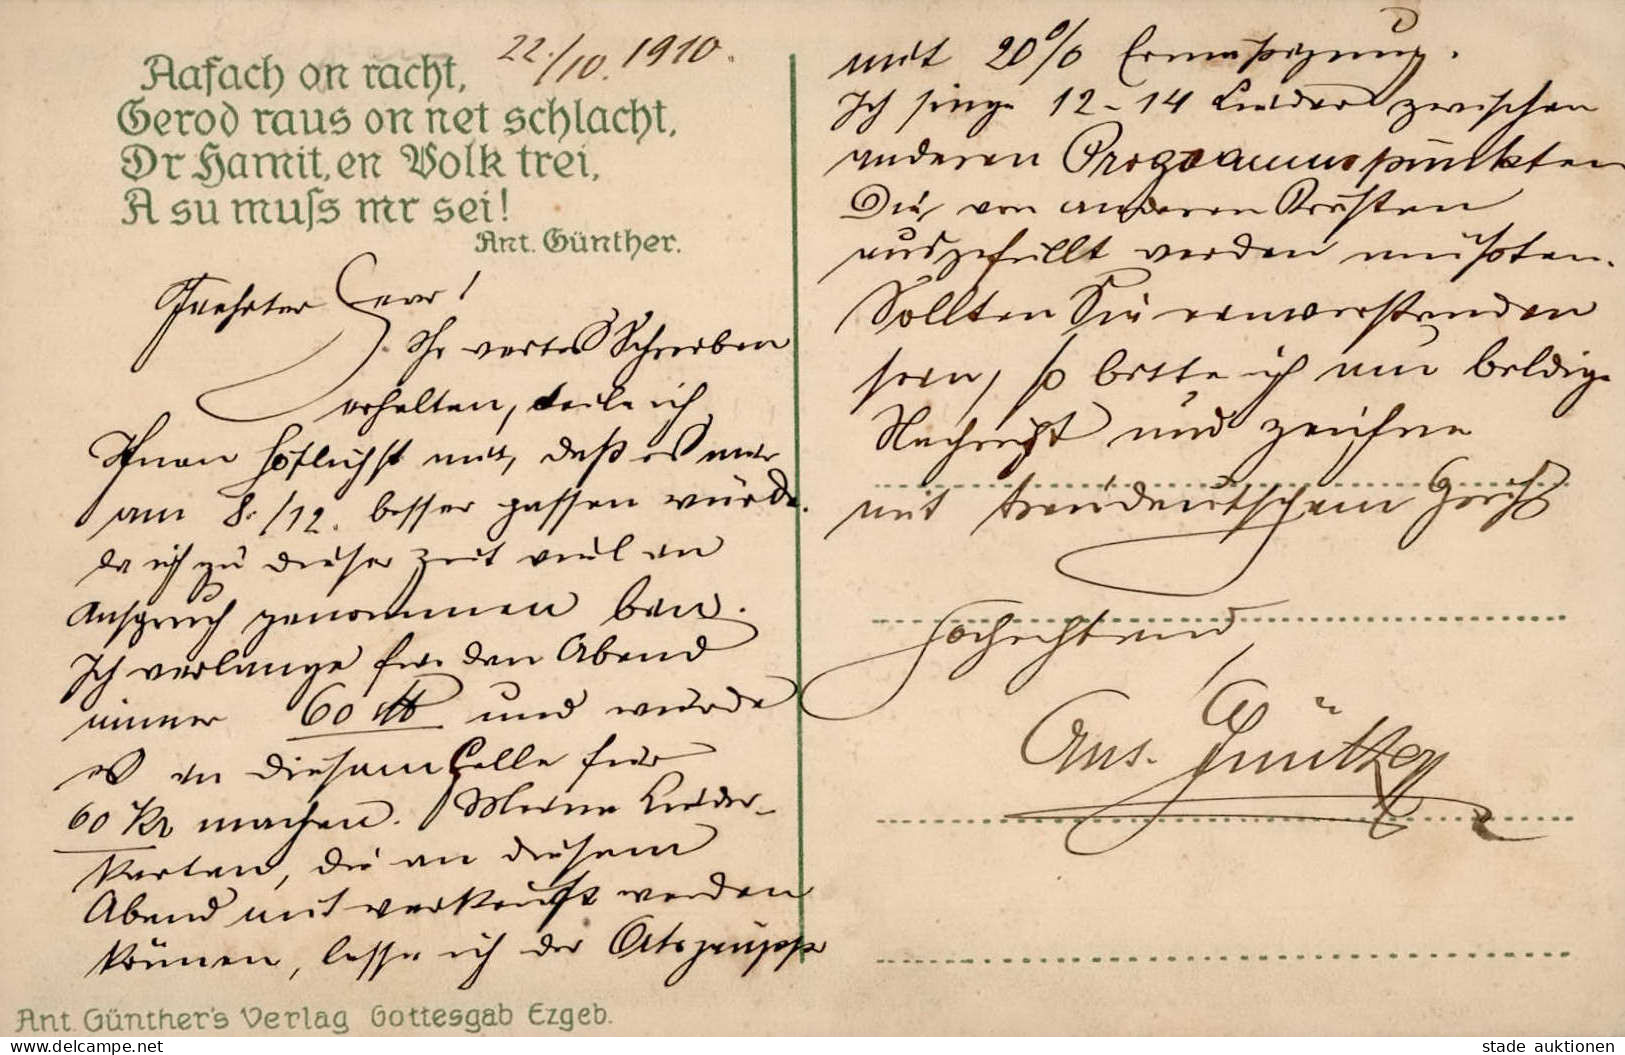 22./10. 1910.
Aafach on racht,
Gerod raus on net schlacht,
Dr Hamit, en Volk trei,
A su muss mr sei!
Ant. Günther.
Geehrter Herr!
Ihr wertes Schreiben
erhalten, teile ich
Ihnen höflichst mit, daß es mir
am 8./12. besser passen würde.
da ich zu dieser Zeit viel in
Anspruch genommen bin.
Ich verlange für den Abend
immer 60 M und würde
es in diesem Falle für
60 Kr machen. Meine Lieder-
karten, die an diesem
Abend mit verkauft werden
können, lasse ich der Ortsgruppe
mit 20% Ermäßigung.
Ich singe 12-14 Lieder zwischen
anderen Programmspunkten
Die von anderen Kräften
ausgefüllt werden müßten.
Sollten Sie einverstanden
sein, so bitte ich um baldige
Nachricht und zeichne
mit treudeutschem Gruß
Hochachtend
Ant. Günther
Ant. Günther's Verlag Gottesgab Ezgeb.
stade auktionen
www.delcampe.net